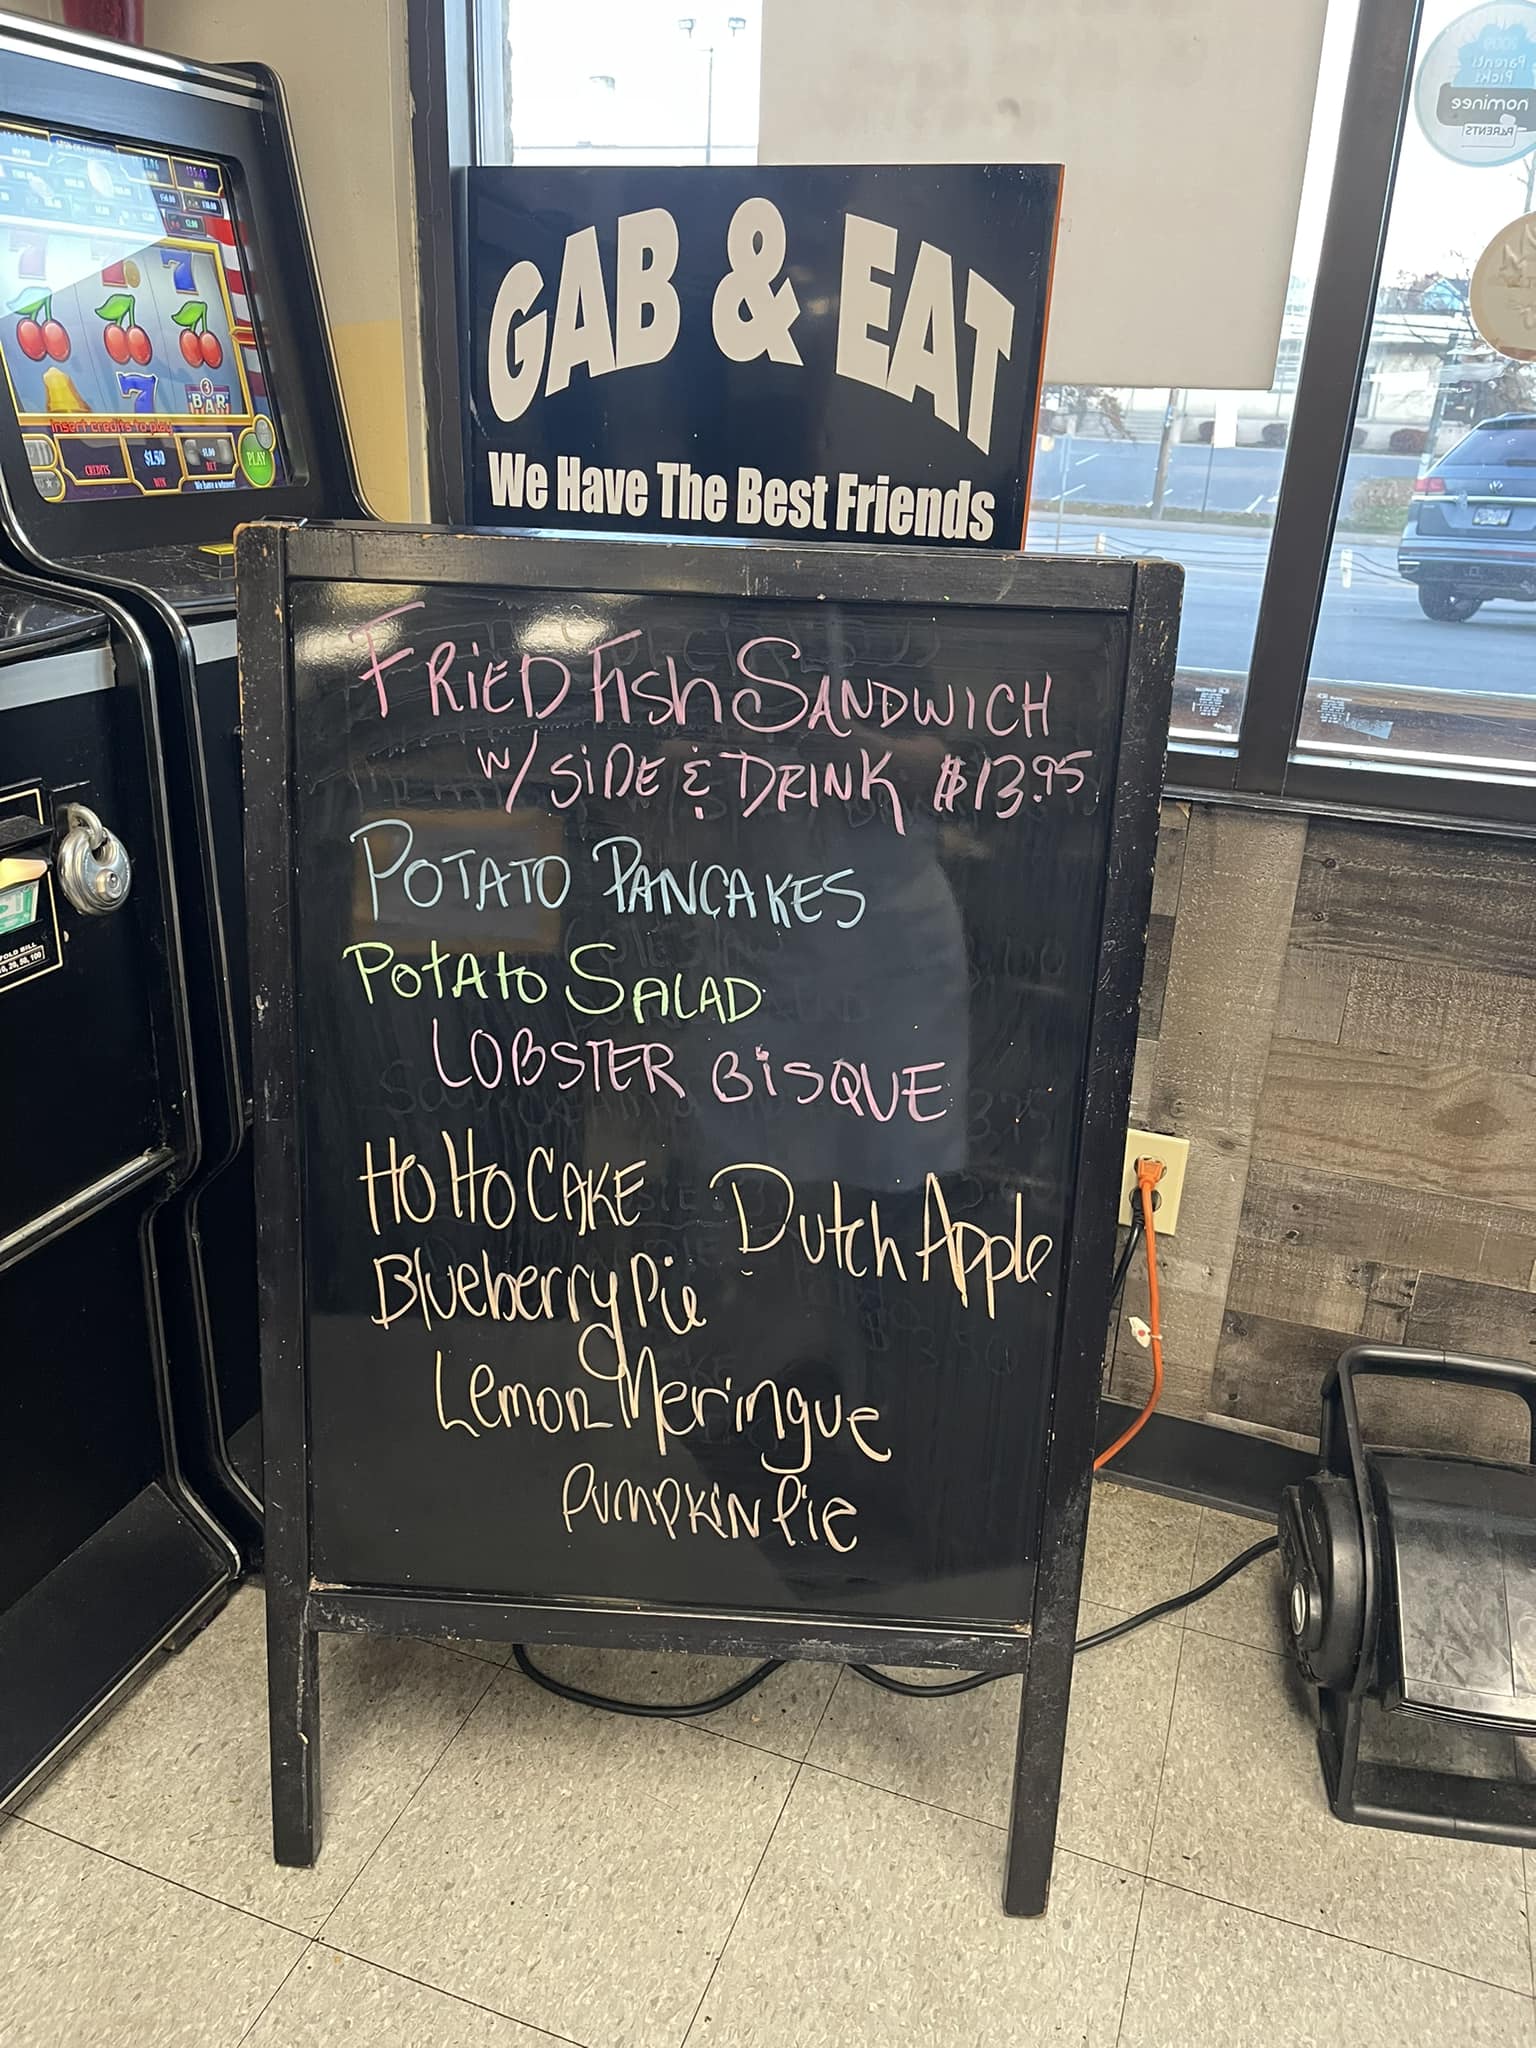 GAB & EAT
We Have The Best Friends
FRiED Fish SANDWICH
W/ SiDE & DRINK $13.95
POTATO PANCAKES
POtAto SALAD
LOBSTER BiSQUE
HO HO CAKE
Dutch Apple
Blueberry Pie
Lemon Meringue
PUMPKIN Pie
insert credits to play
CREDITS
$1.50
WIN
$1.00
BET
PLAY
We have a winner!
3
BAR
7
7
nominee
PARENTS